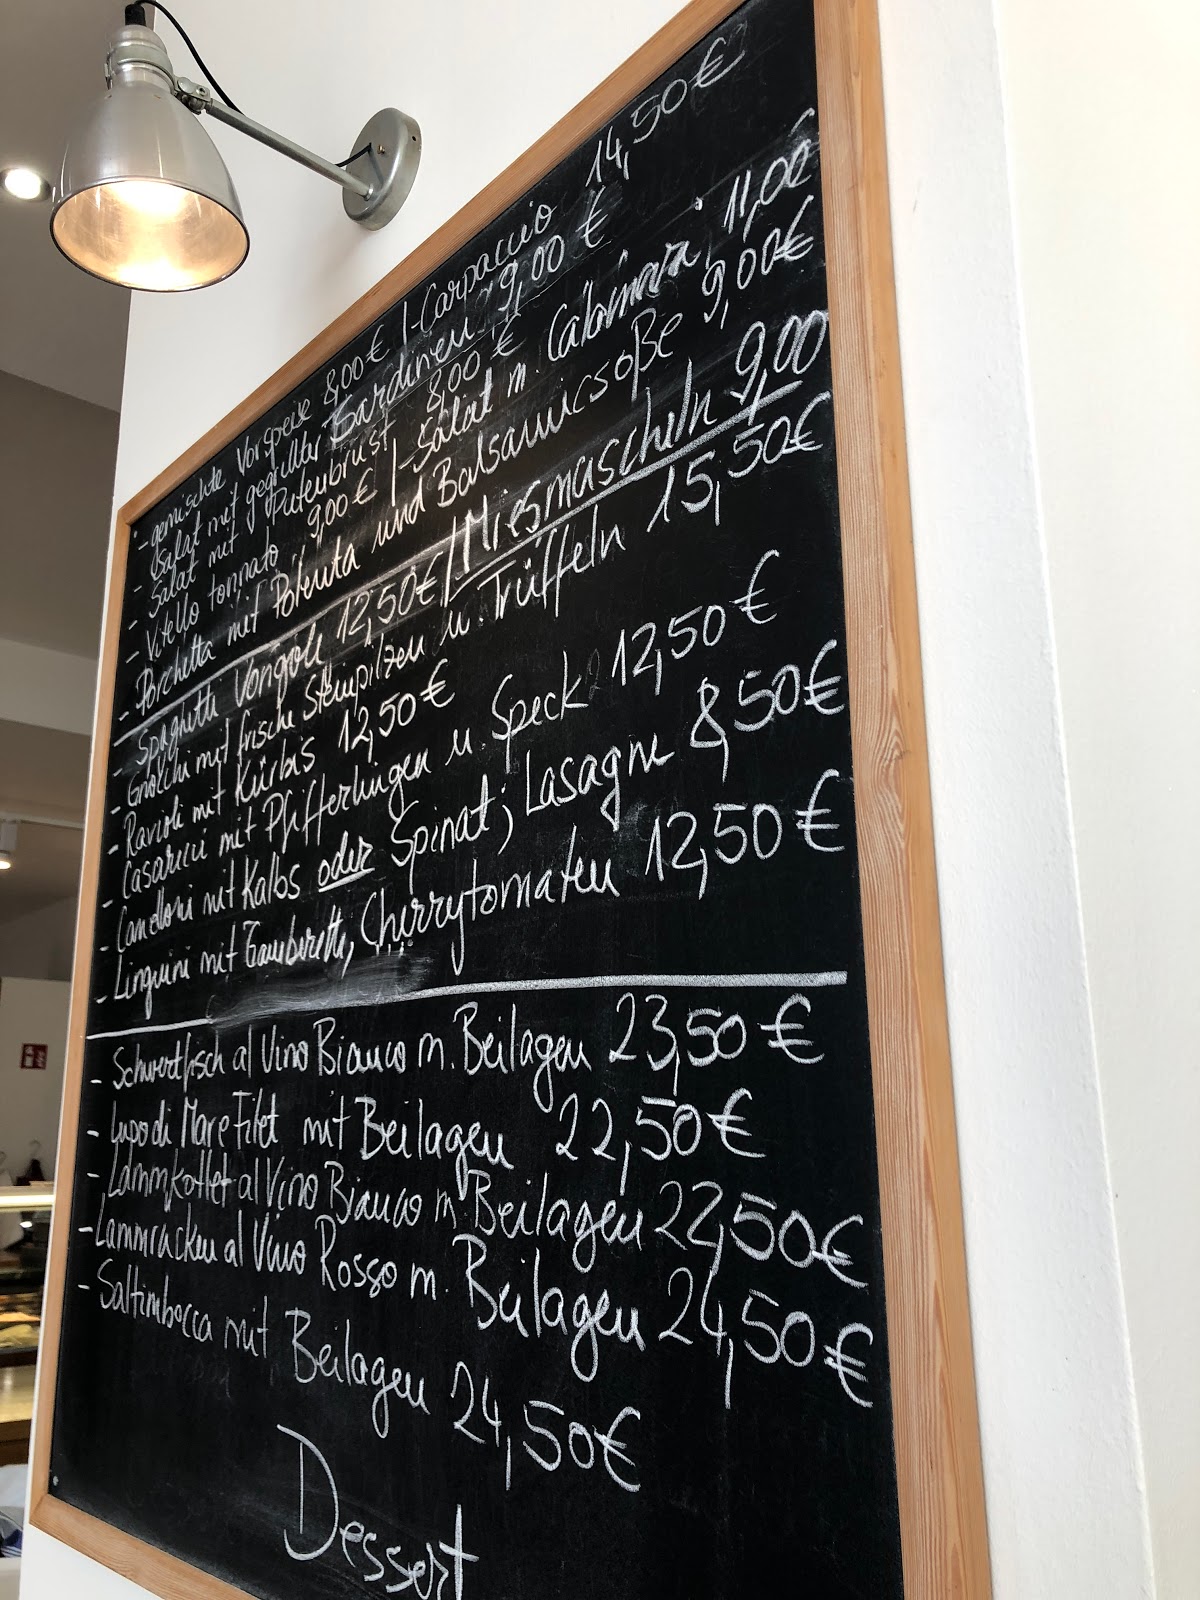 - gemischte Vorspeise 8,00€ |-Carpaccio 14,50€
- Salat mit gegrillter Sardinen 9,00 €
- Salat mit Putenbrust 8,00 €
- Vitello tonnato 9,00€ |-Salat m. Calamari 11,00€
- Porchetta mit Polenta und Balsamicsoße 9,00€
- Spaghetti Vongole 12,50€ | Miesmascheln 9,00
- Gnocchi mit frische Steinpilzen u. Trüffeln 15,50€
- Ravioli mit Kürbis 12,50€
- Casarecci mit Pfifferlingen u. Speck 12,50€
- Cannelloni mit Kalbs oder Spinat; Lasagne 8,50€
- Linguini mit Gamberetti, Cherrytomaten 12,50€
- Schwertfisch al Vino Bianco m. Beilagen 23,50€
- Lupo di Mare Filet mit Beilagen 22,50€
- Lammkotlet al Vino Bianco m. Beilagen 22,50€
- Lammracken al Vino Rosso m. Beilagen 24,50€
- Saltimbocca mit Beilagen 24,50€
Dessert